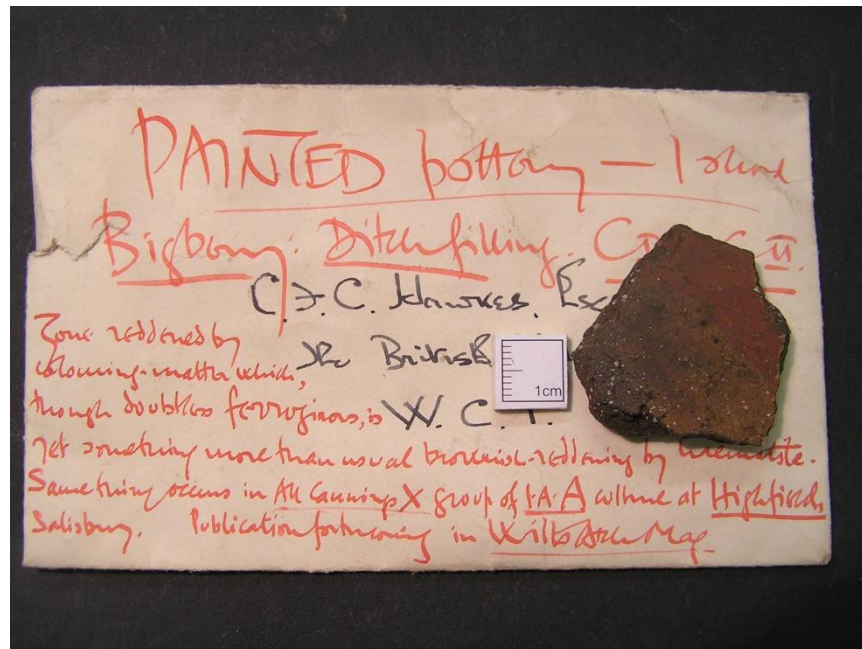 PAINTED pottery — 1 sherd
Bigbury. Ditch filling.
C.F.C. Hawkes. Esq
The British
W. C. 1.
Zone reddened by
colouring-matter which,
though doubtless ferruginous, is
yet something more than usual brownish-reddening by haematite.
Same thing occurs in All Cannings X group of I.A. A culture at Highfield,
Salisbury. Publication forthcoming in Wilts Arch Mag.
1cm